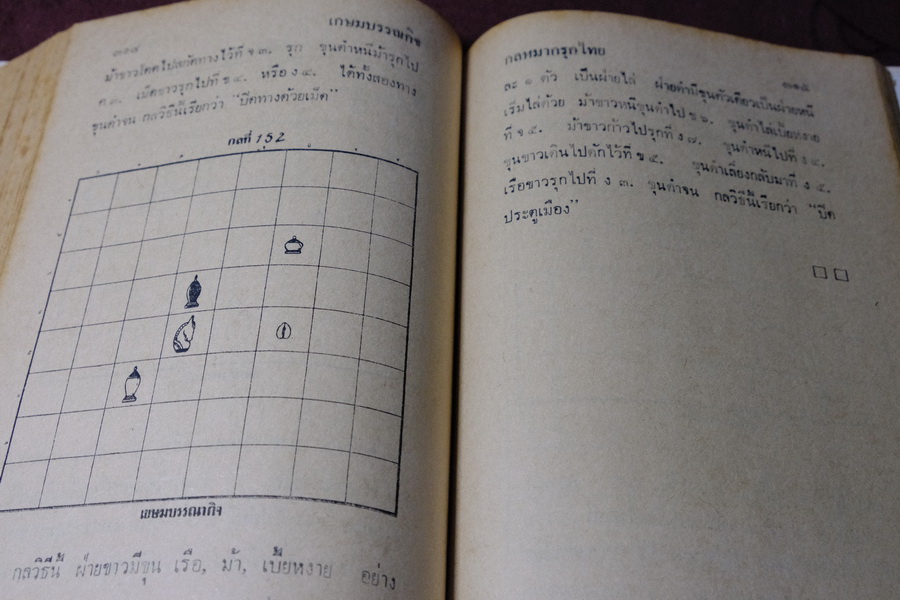 เกษมบรรณกิจ
๓๑๔
ม้าขาวโดดไปสกัดทางไว้ที่ จ ๓. รุก ขุนดำหนีม้ารุกไป
ค ๓. เม็ดขาวรุกไปที่ ข ๔. หรือ ง ๔. ได้ทั้งสองทาง
ขุนดำจน กลวิธีนี้เรียกว่า “ปิดทางด้วยเม็ด”
กลที่ 152
เขษมบรรณากิจ
กลวิธีนี้ ฝ่ายขาวมีขุน เรือ, ม้า, เบี้ยหงาย อย่าง
กลหมากรุกไทย
๓๑๕
ละ ๑ ตัว เป็นฝ่ายไล่ ฝ่ายดำมีขุนตัวเดียวเป็นฝ่ายหนี
เริ่มไล่ด้วย ม้าขาวหนีขุนดำไป ข ๖. ขุนดำไล่เบี้ยหงาย
ที่ จ ๕. ม้าขาวก้าวไปรุกที่ ง ๗. ขุนดำหนีไปที่ ง ๕.
ขุนขาวเดินไปดักไว้ที่ ข ๕. ขุนดำเลี่ยงกลับมาที่ ง ๕.
เรือขาวรุกไปที่ ง ๓. ขุนดำจน กลวิธีนี้เรียกว่า “ปิด
ประตูเมือง”